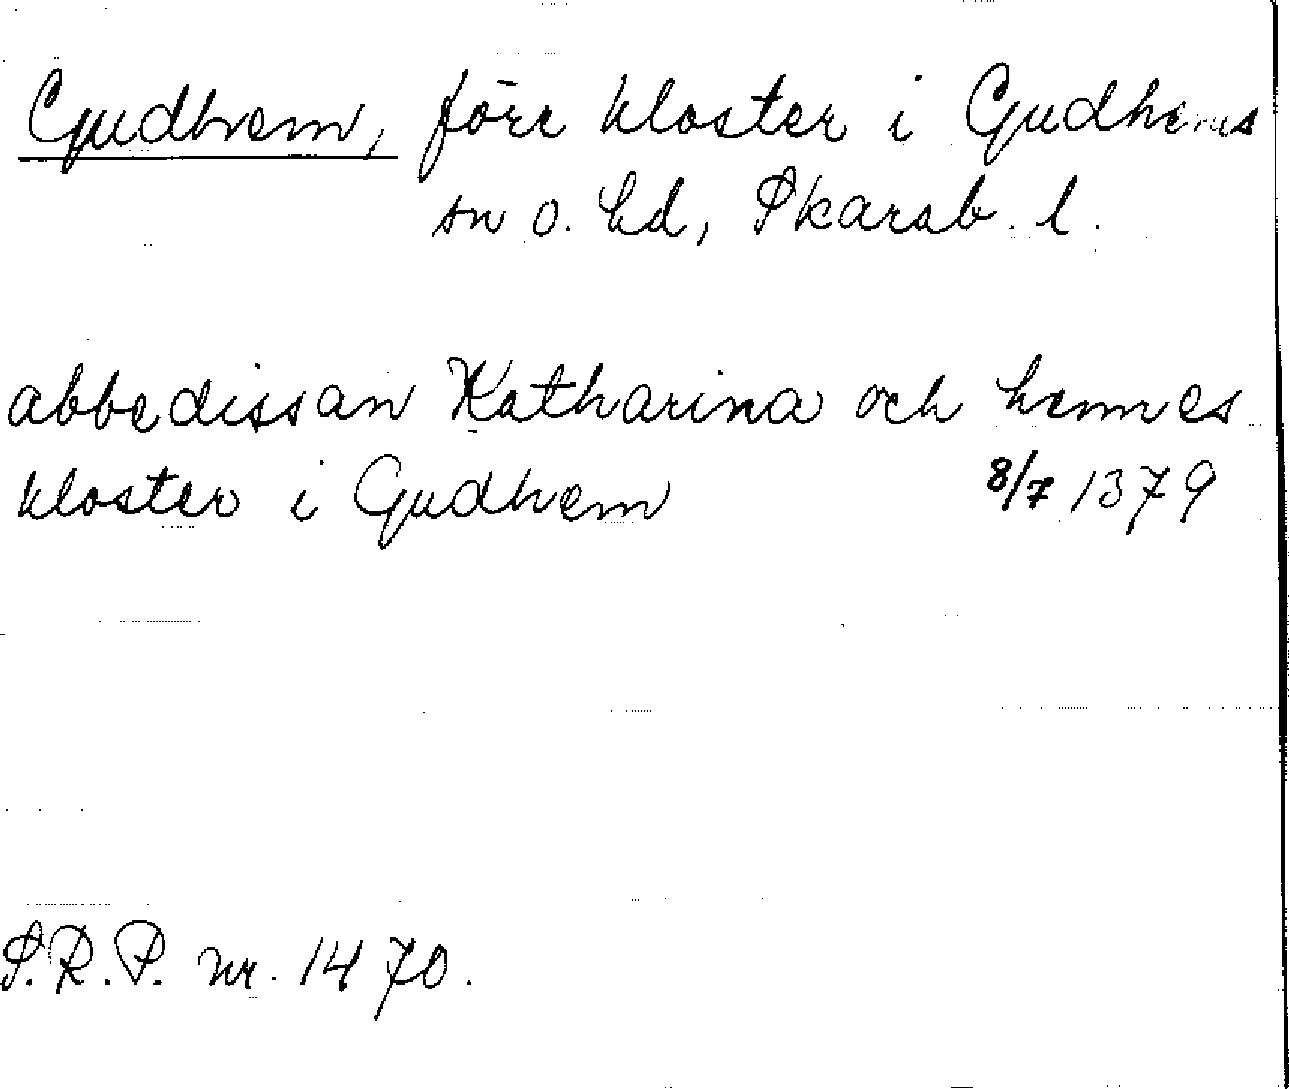 Gudhem, förr kloster i Gudhems
sn o. hd, Skarab. l.
abbedissan Katharina och hennes
kloster i Gudhem 8/7 1379
S.R.P. nr. 1470.